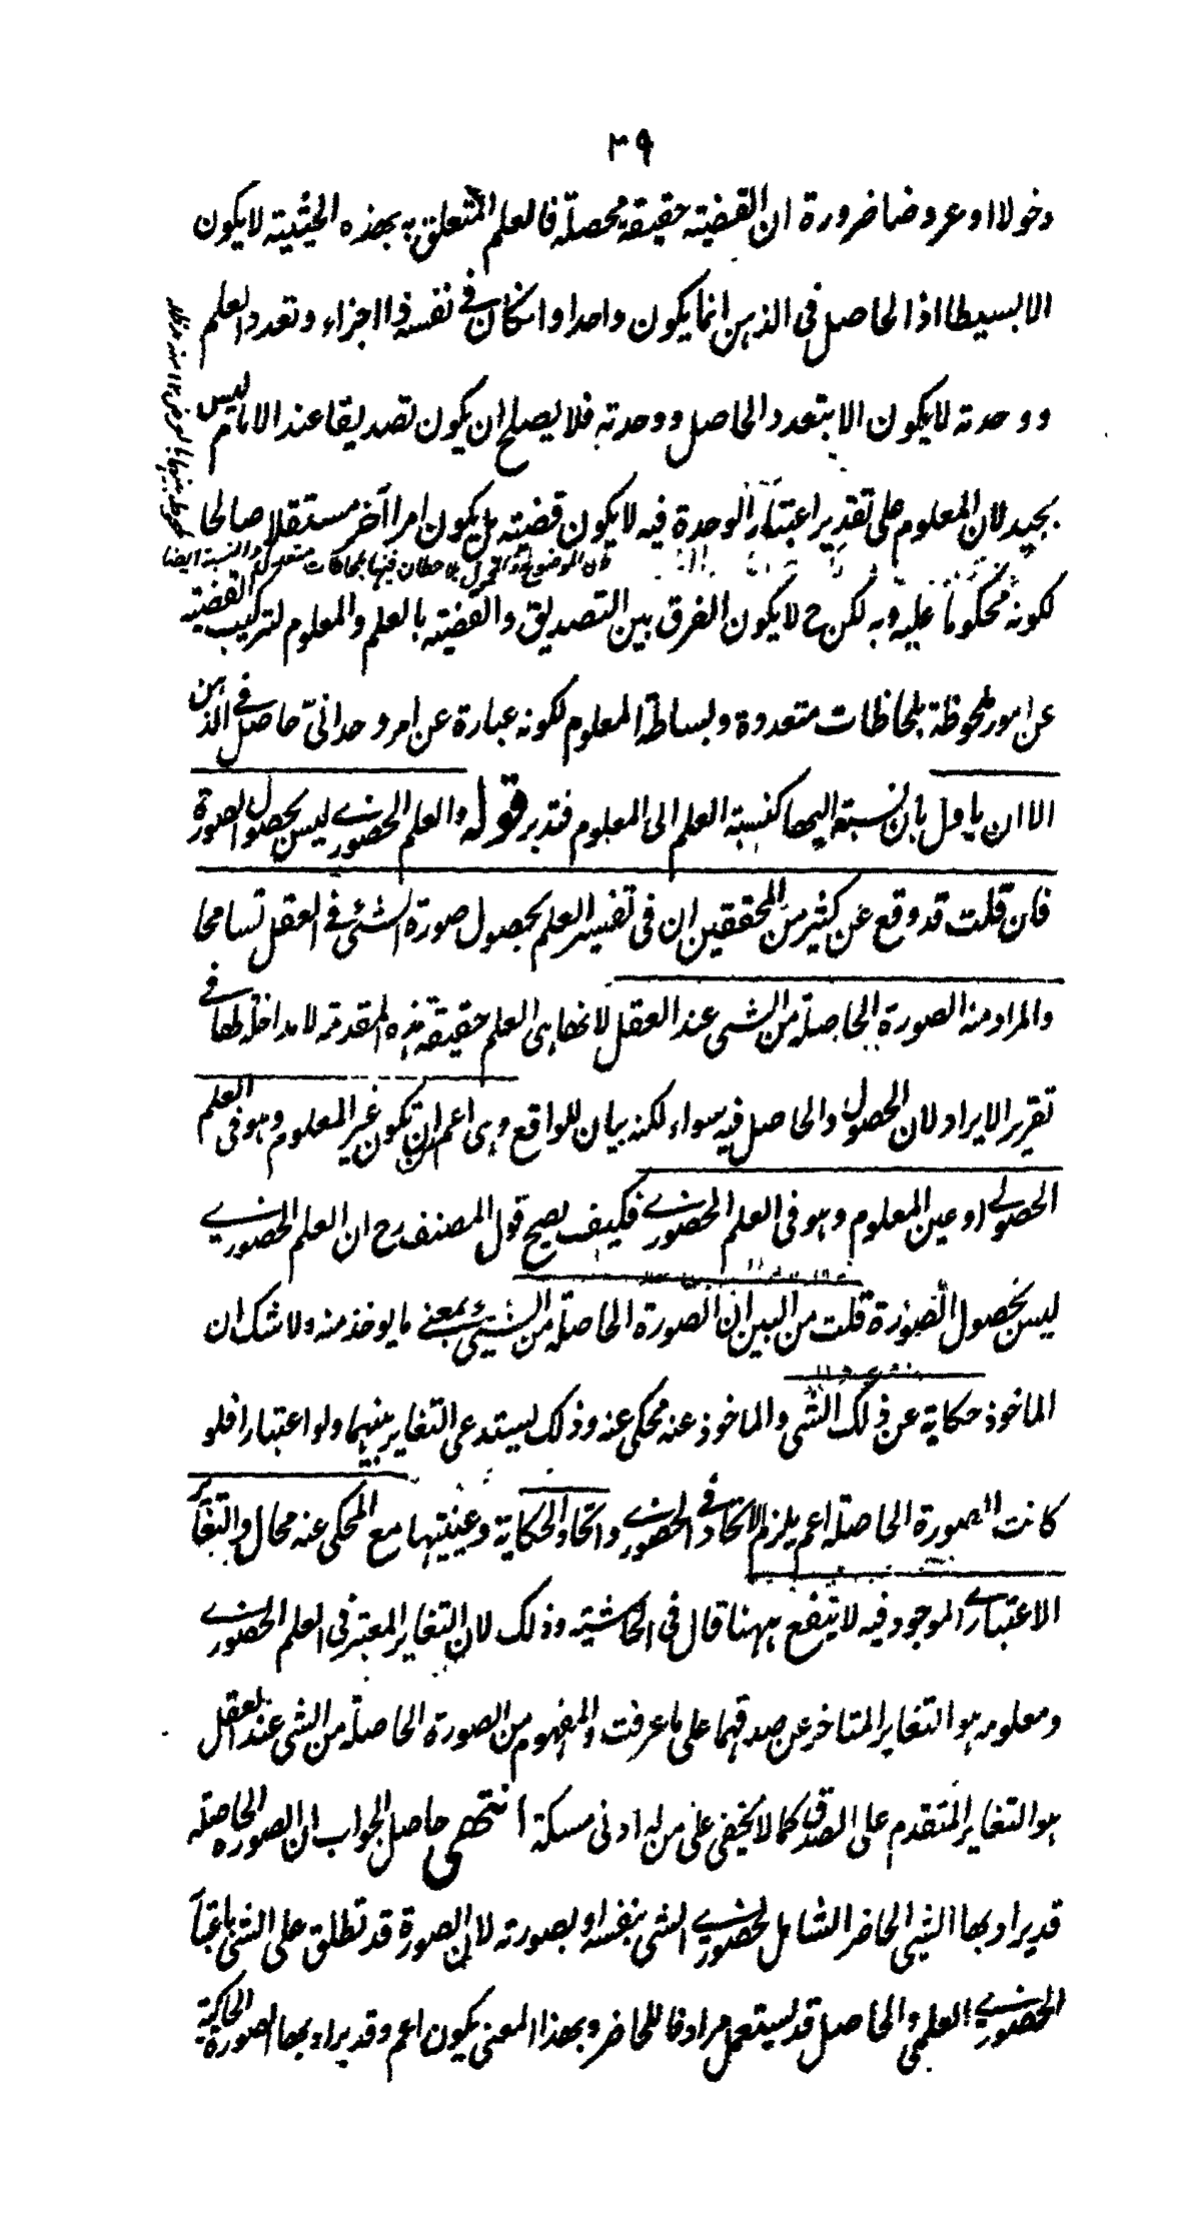 ٣٩
دخولا او عروضا ضرورة ان القضية حقيقة محصلة فالعلم المتعلق به بهذه الحيثية لا يكون
الا بسيطا اذ الحاصل فى الذهن انما يكون واحدا وان كان فى نفسه ذا اجزاء وتعدد العلم
ووحدته لا يكون الا بتعدد الحاصل ووحدته فلا يصلح ان يكون تصديقا عند الامام ليس
بجيد لان المعلوم على تقدير اعتبار الوحدة فيه لا يكون قضية بل يكون امرا آخر مستقلا صالحا
فان الموضوع والمحمول ملاحظان فيها بلحاظات متعددة والنسبة ايضا
لكونه محكوما عليه وبه لكن ح لا يكون الفرق بين التصديق والقضية بالعلم والمعلوم لتركيب القضية
عن امور ملحوظة بلحاظات متعددة وبساطة المعلوم لكونه عبارة عن امر وحدانى حاصل فى الذهن
الا ان ياول بان نسبته اليها كنسبة العلم الى المعلوم فتدبر قوله والعلم الحضورى ليس بحصول الصورة
فان قلت قد وقع عن كثير من المحققين ان فى تفسير العلم بحصول صورة الشئ فى العقل تسامحا
والمراد منه الصورة الحاصلة من الشى عند العقل لانها هى العلم حقيقة هذه المقدمة لا مداخلة لها فى
تقرير الايراد لان الحصول والحاصل فيه سواء لكنه بيان للواقع وهى اعم ان تكون غير المعلوم وهو فى العلم
الحصولى او عين المعلوم وهو فى العلم الحضورى فكيف يصح قول المصنف رح ان العلم الحضورى
ليس بحصول الصورة قلت من البين ان الصورة الحاصلة من الشئ بمعنى ما يوخذ منه ولا شك ان
الماخوذ حكاية عن ذلك الشى والماخوذ عنه محكى عنه وذلك يستدعى التغاير بينهما ولو اعتبارا فلو
كانت الصورة الحاصلة اعم يلزم الاتحاد فى الحضورى واتحاد الحكاية وعينيتها مع المحكى عنه محال والتغاير
الاعتبارى الموجود فيه لا ينفع ههنا قال فى الحاشية وذلك لان التغاير المعتبر فى العلم الحضورى
ومعلومه هو التغاير المتاخر عن صدقهما على ما عرفت والمفهوم من الصورة الحاصلة من الشى عند العقل
هو التغاير المتقدم على الصدق كما لا يخفى على من له ادنى مسكة انتهى حاصل الجواب ان الصورة الحاصلة
قد يراد بها الشى الحاضر الشامل لحضورى الشى بنفسه او بصورته لان الصورة قد تطلق على الشى باعتبار
الحضورى العلمى والحاصل قد يستعمل مرادفا للحاضر وبهذا المعنى يكون اعم وقد يراد بها الصورة الحاكية